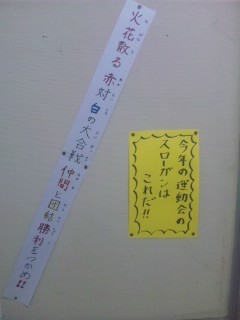 今年の運動会の
スローガンは
これだ!!
火花散る 赤対白の大合戦 仲間と団結 勝利をつかめ!!